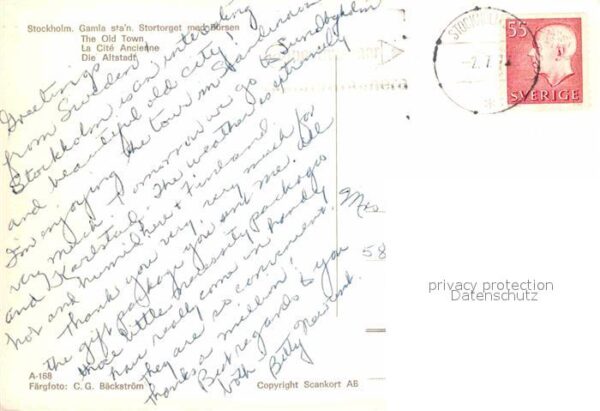 Stockholm. Gamla sta'n, Stortorget med Börsen
The Old Town
La Cité Ancienne
Die Altstadt
Greetings
from Sweden
Stockholm is an interesting
and beautiful old city!
I'm enjoying the tour in Scandinavia
very much. Tomorrow we go to Sundbyholm
and Karlstad. The weather is extremely
hot and humid here & Finland.
Thank you very, very much for
the gift package you sent me. All
those little necessity packages
have really come in handy
They are so convenient.
Thanks a million!
Best regards to you
both - Betty
Mrs
58
STOCKHOLM
55
SVERIGE
privacy protection
Datenschutz
A-168
Färgfoto: C. G. Bäckström
Copyright Scankort AB